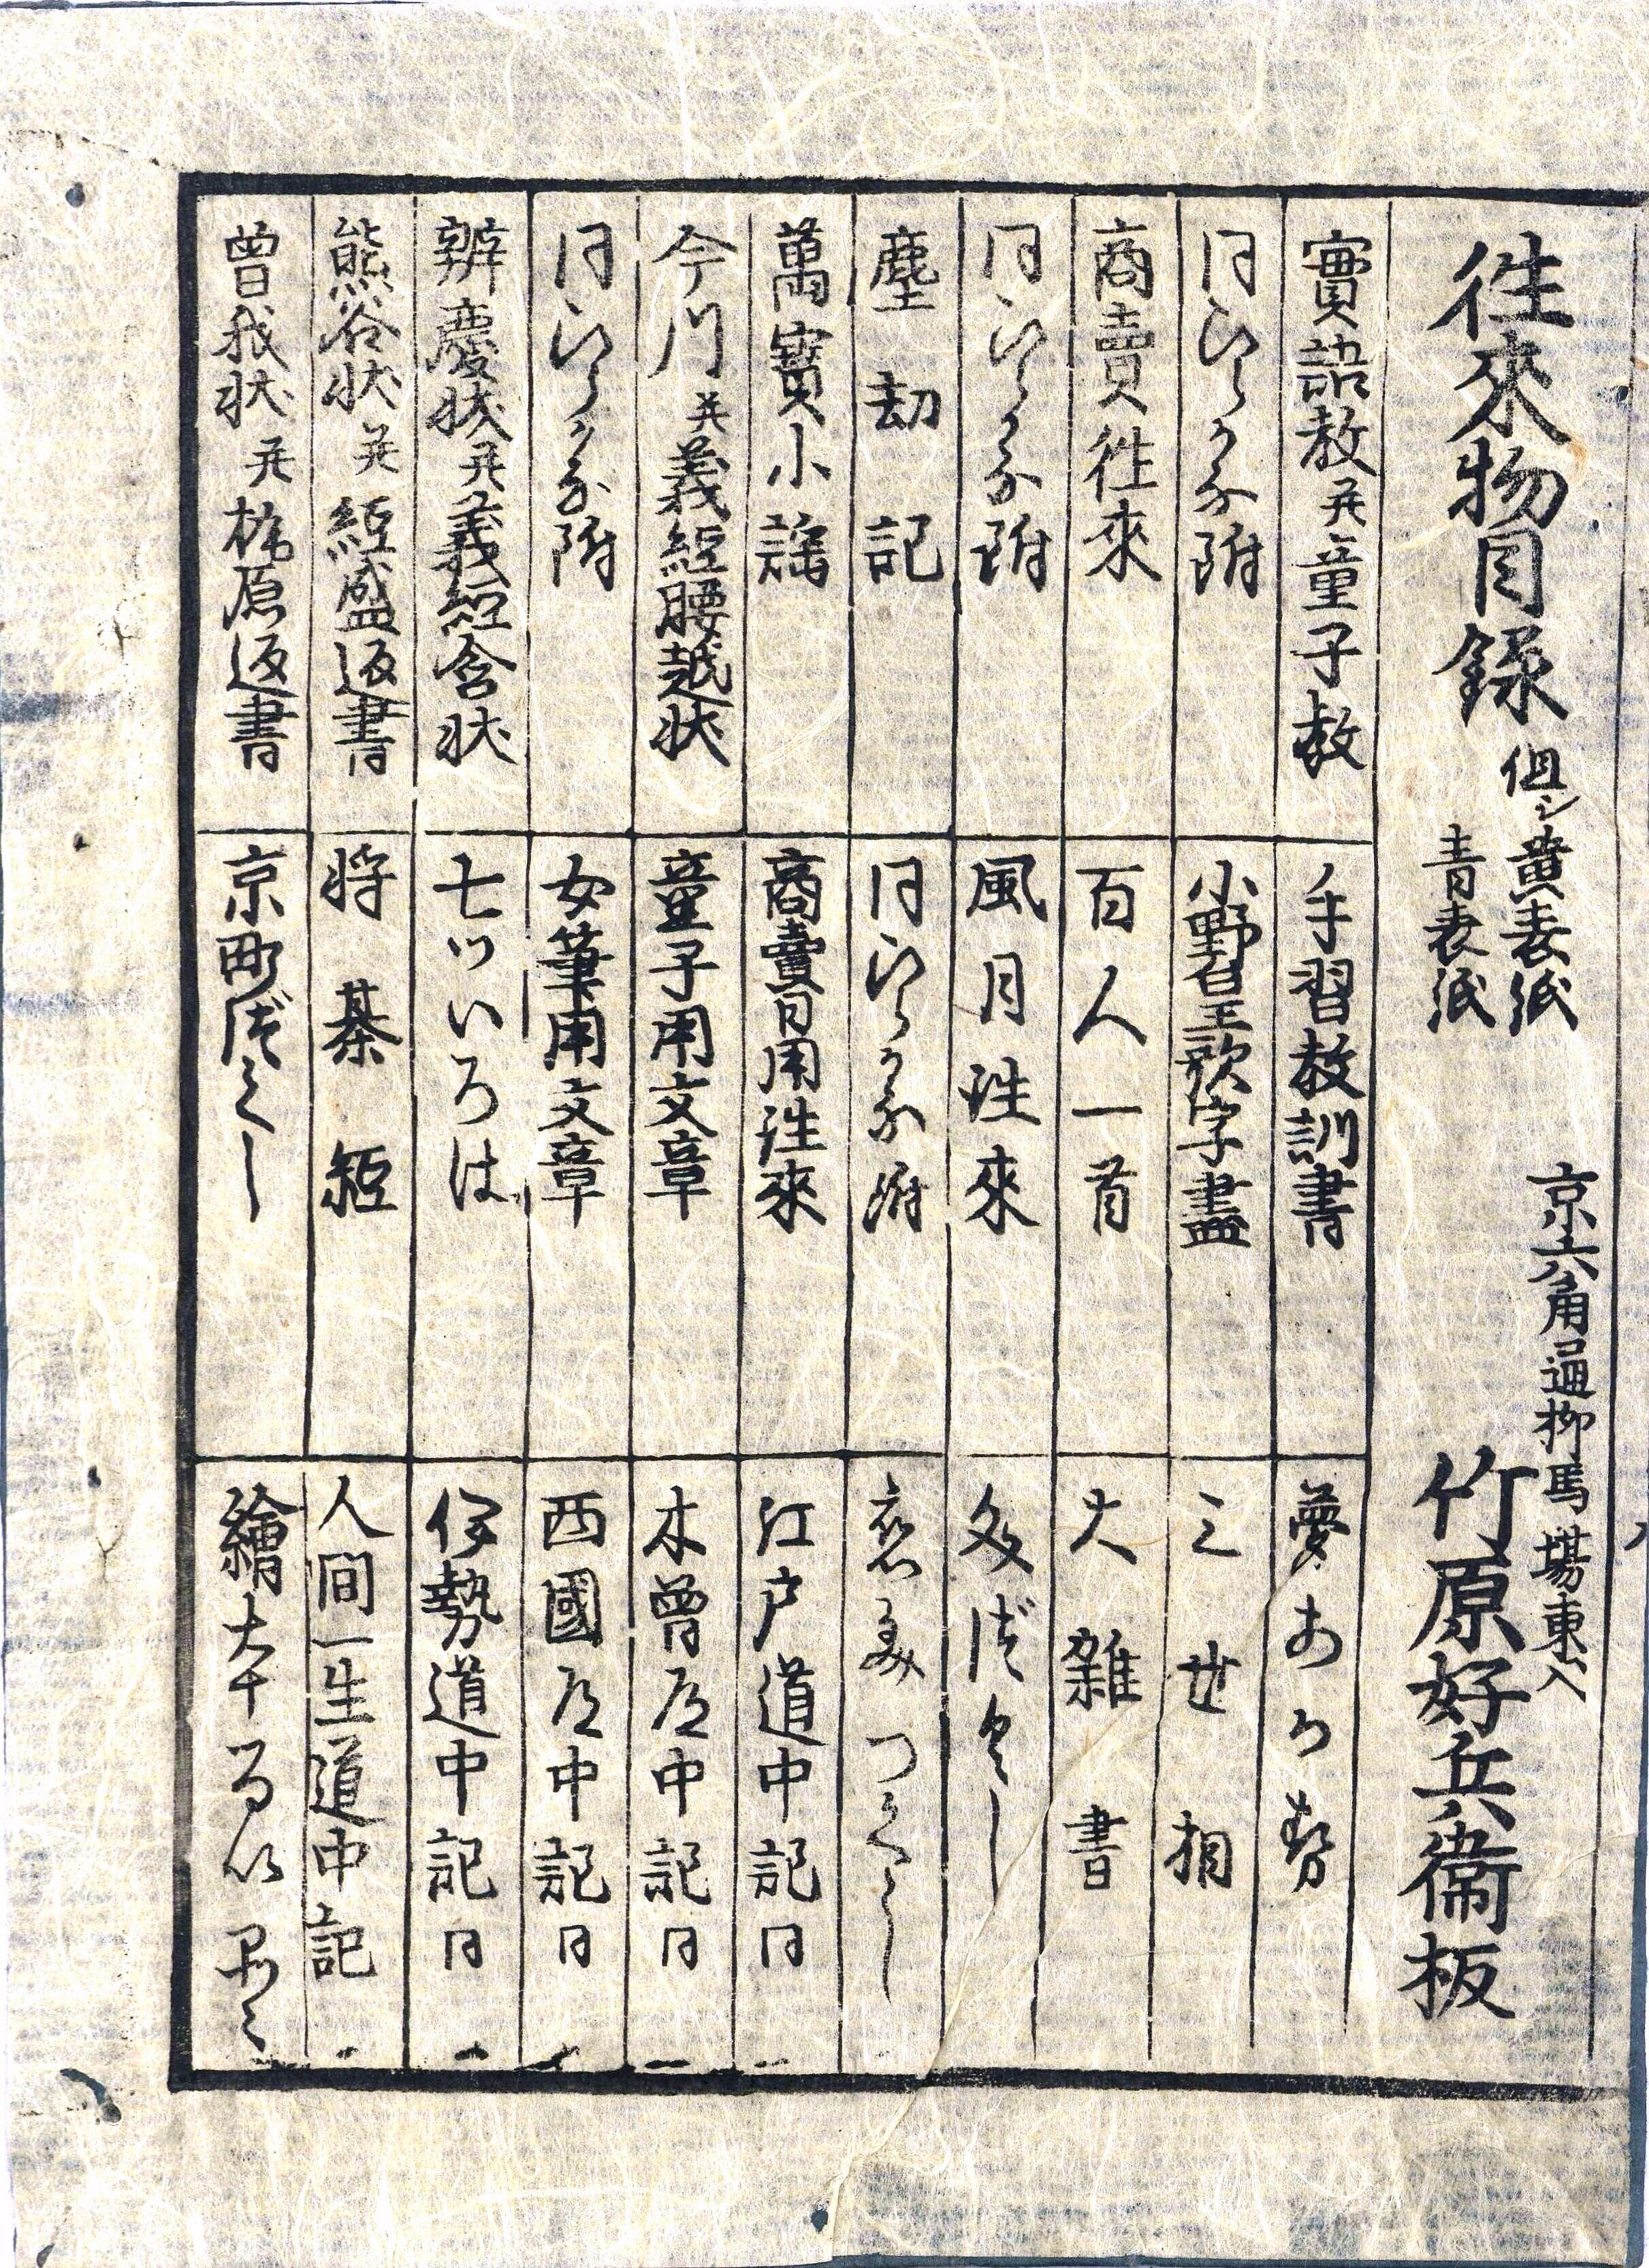 往來物目録
但シ黄表紙
青表紙
京六角通柳馬場東入
竹原好兵衛板
實語教并童子教
同ひらかな附
商賣徃來
同ひらかな附
塵劫記
萬寶小謡
今川并義經腰越状
同ひらかな附
辨慶状并義經含状
熊谷状并經盛返書
曽我状并梶原返書
手習教訓書
小野篁歌字盡
百人一首
風月徃來
同ひらかな附
商賣日用徃來
童子用文章
女筆用文章
七ツいろは
将棊経
京町づくし
夢あわせ
三世相
大雜書
文づくし
つくし
江戸道中記同
木曽道中記同
西國道中記同
伊勢道中記同
人間一生道中記
繪本るい品〻